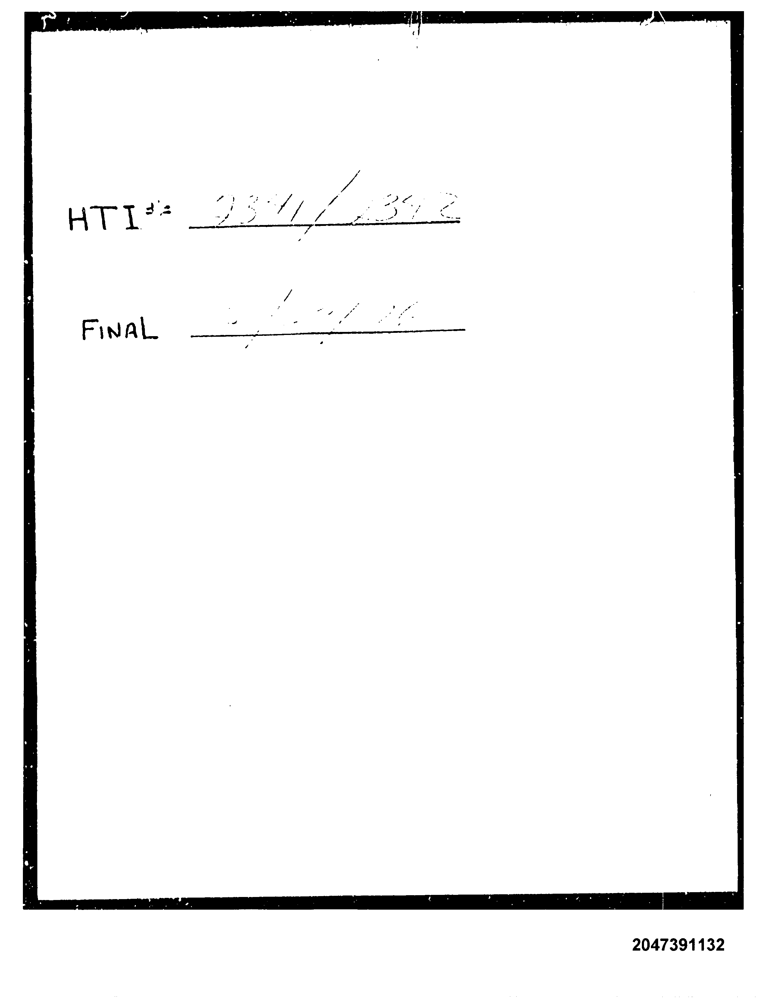 HTI #'s 2341/2342
FINAL
2047391132